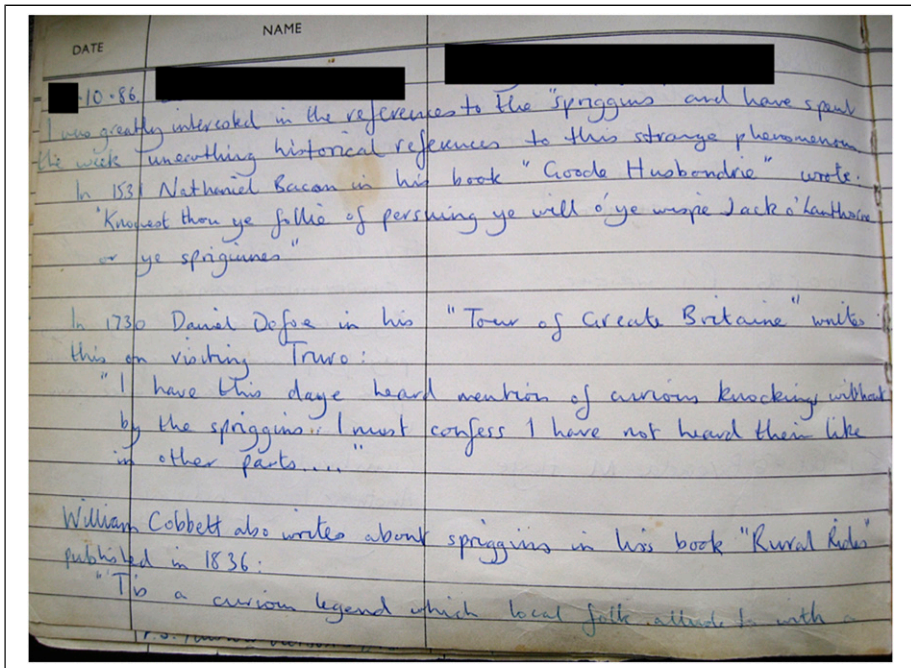 DATE NAME
10.86
I was greatly interested in the references to the "spriggins and have spent
the week unearthing historical references to this strange phenomenon
In 1531 Nathaniel Bacon in his book "Goode Husbondrie" wrote.
"Knowest thou ye follie of persuing ye will o' ye wispe Jack o' Lanthorne
or ye spriginnes"
In 1730 Daniel Defoe in his "Tour of Greate Britaine" writes
this on visiting Truro:
"I have this daye heard mention of curious knockings without
by the spriggins. I must confess I have not heard their like
in other parts...."
William Cobbett also writes about spriggins in his book "Rural Rides"
published in 1836:
"Tis a curious legend which local folk allude to with a
P.S.